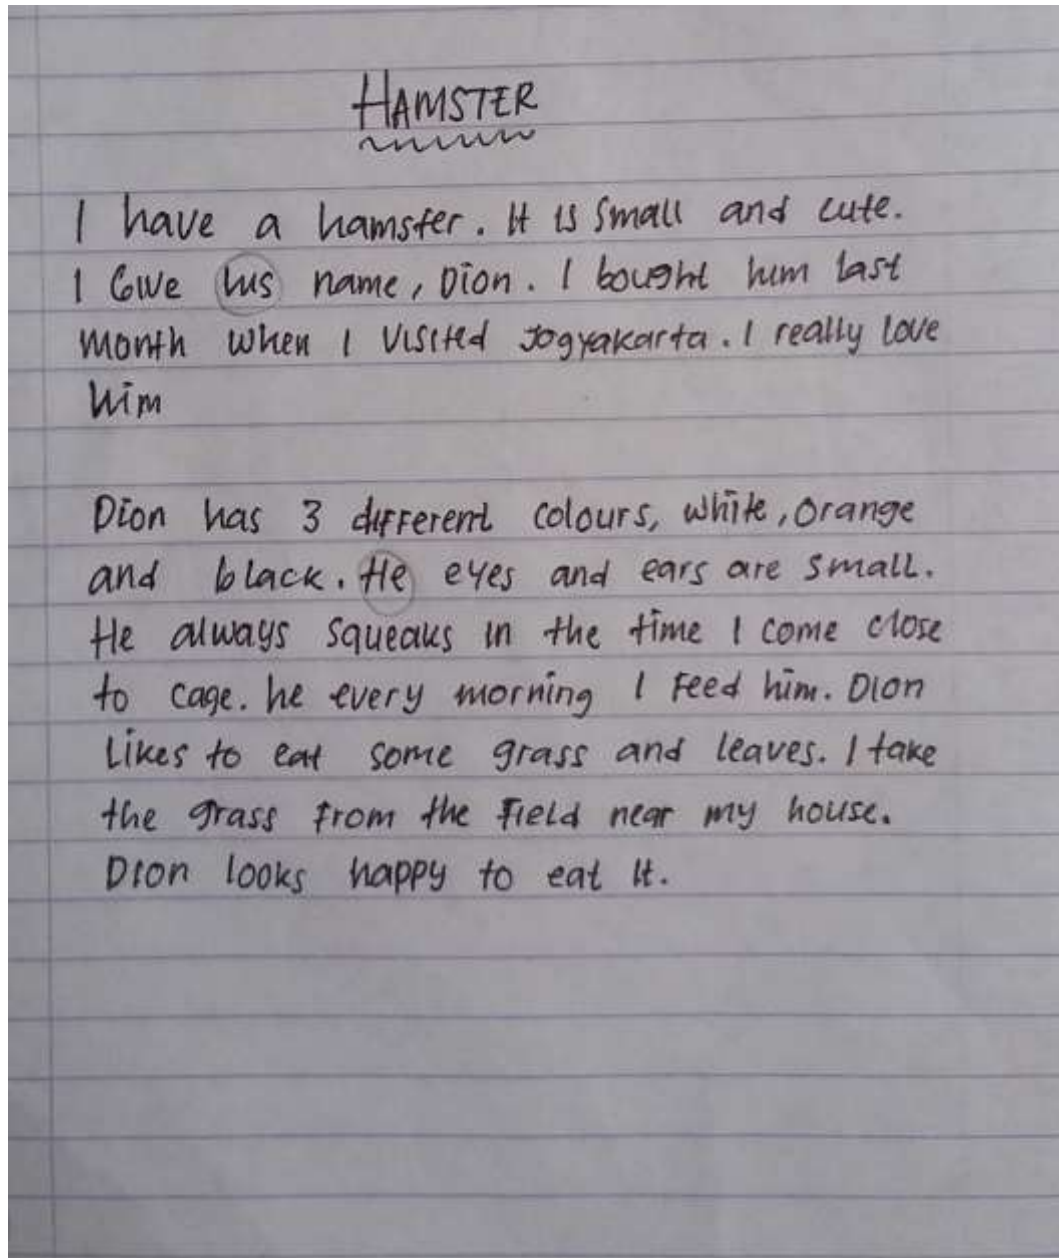 HAMSTER
I have a hamster. It is small and cute.
I Give his name, Dion. I bought him last
month when I visited Jogyakarta. I really love
him
Dion has 3 different colours, white, orange
and black. He eyes and ears are small.
He always squeaks in the time I come close
to cage. he every morning I Feed him. Dion
Likes to eat some grass and leaves. I take
the grass from the Field near my house.
Dion looks happy to eat it.